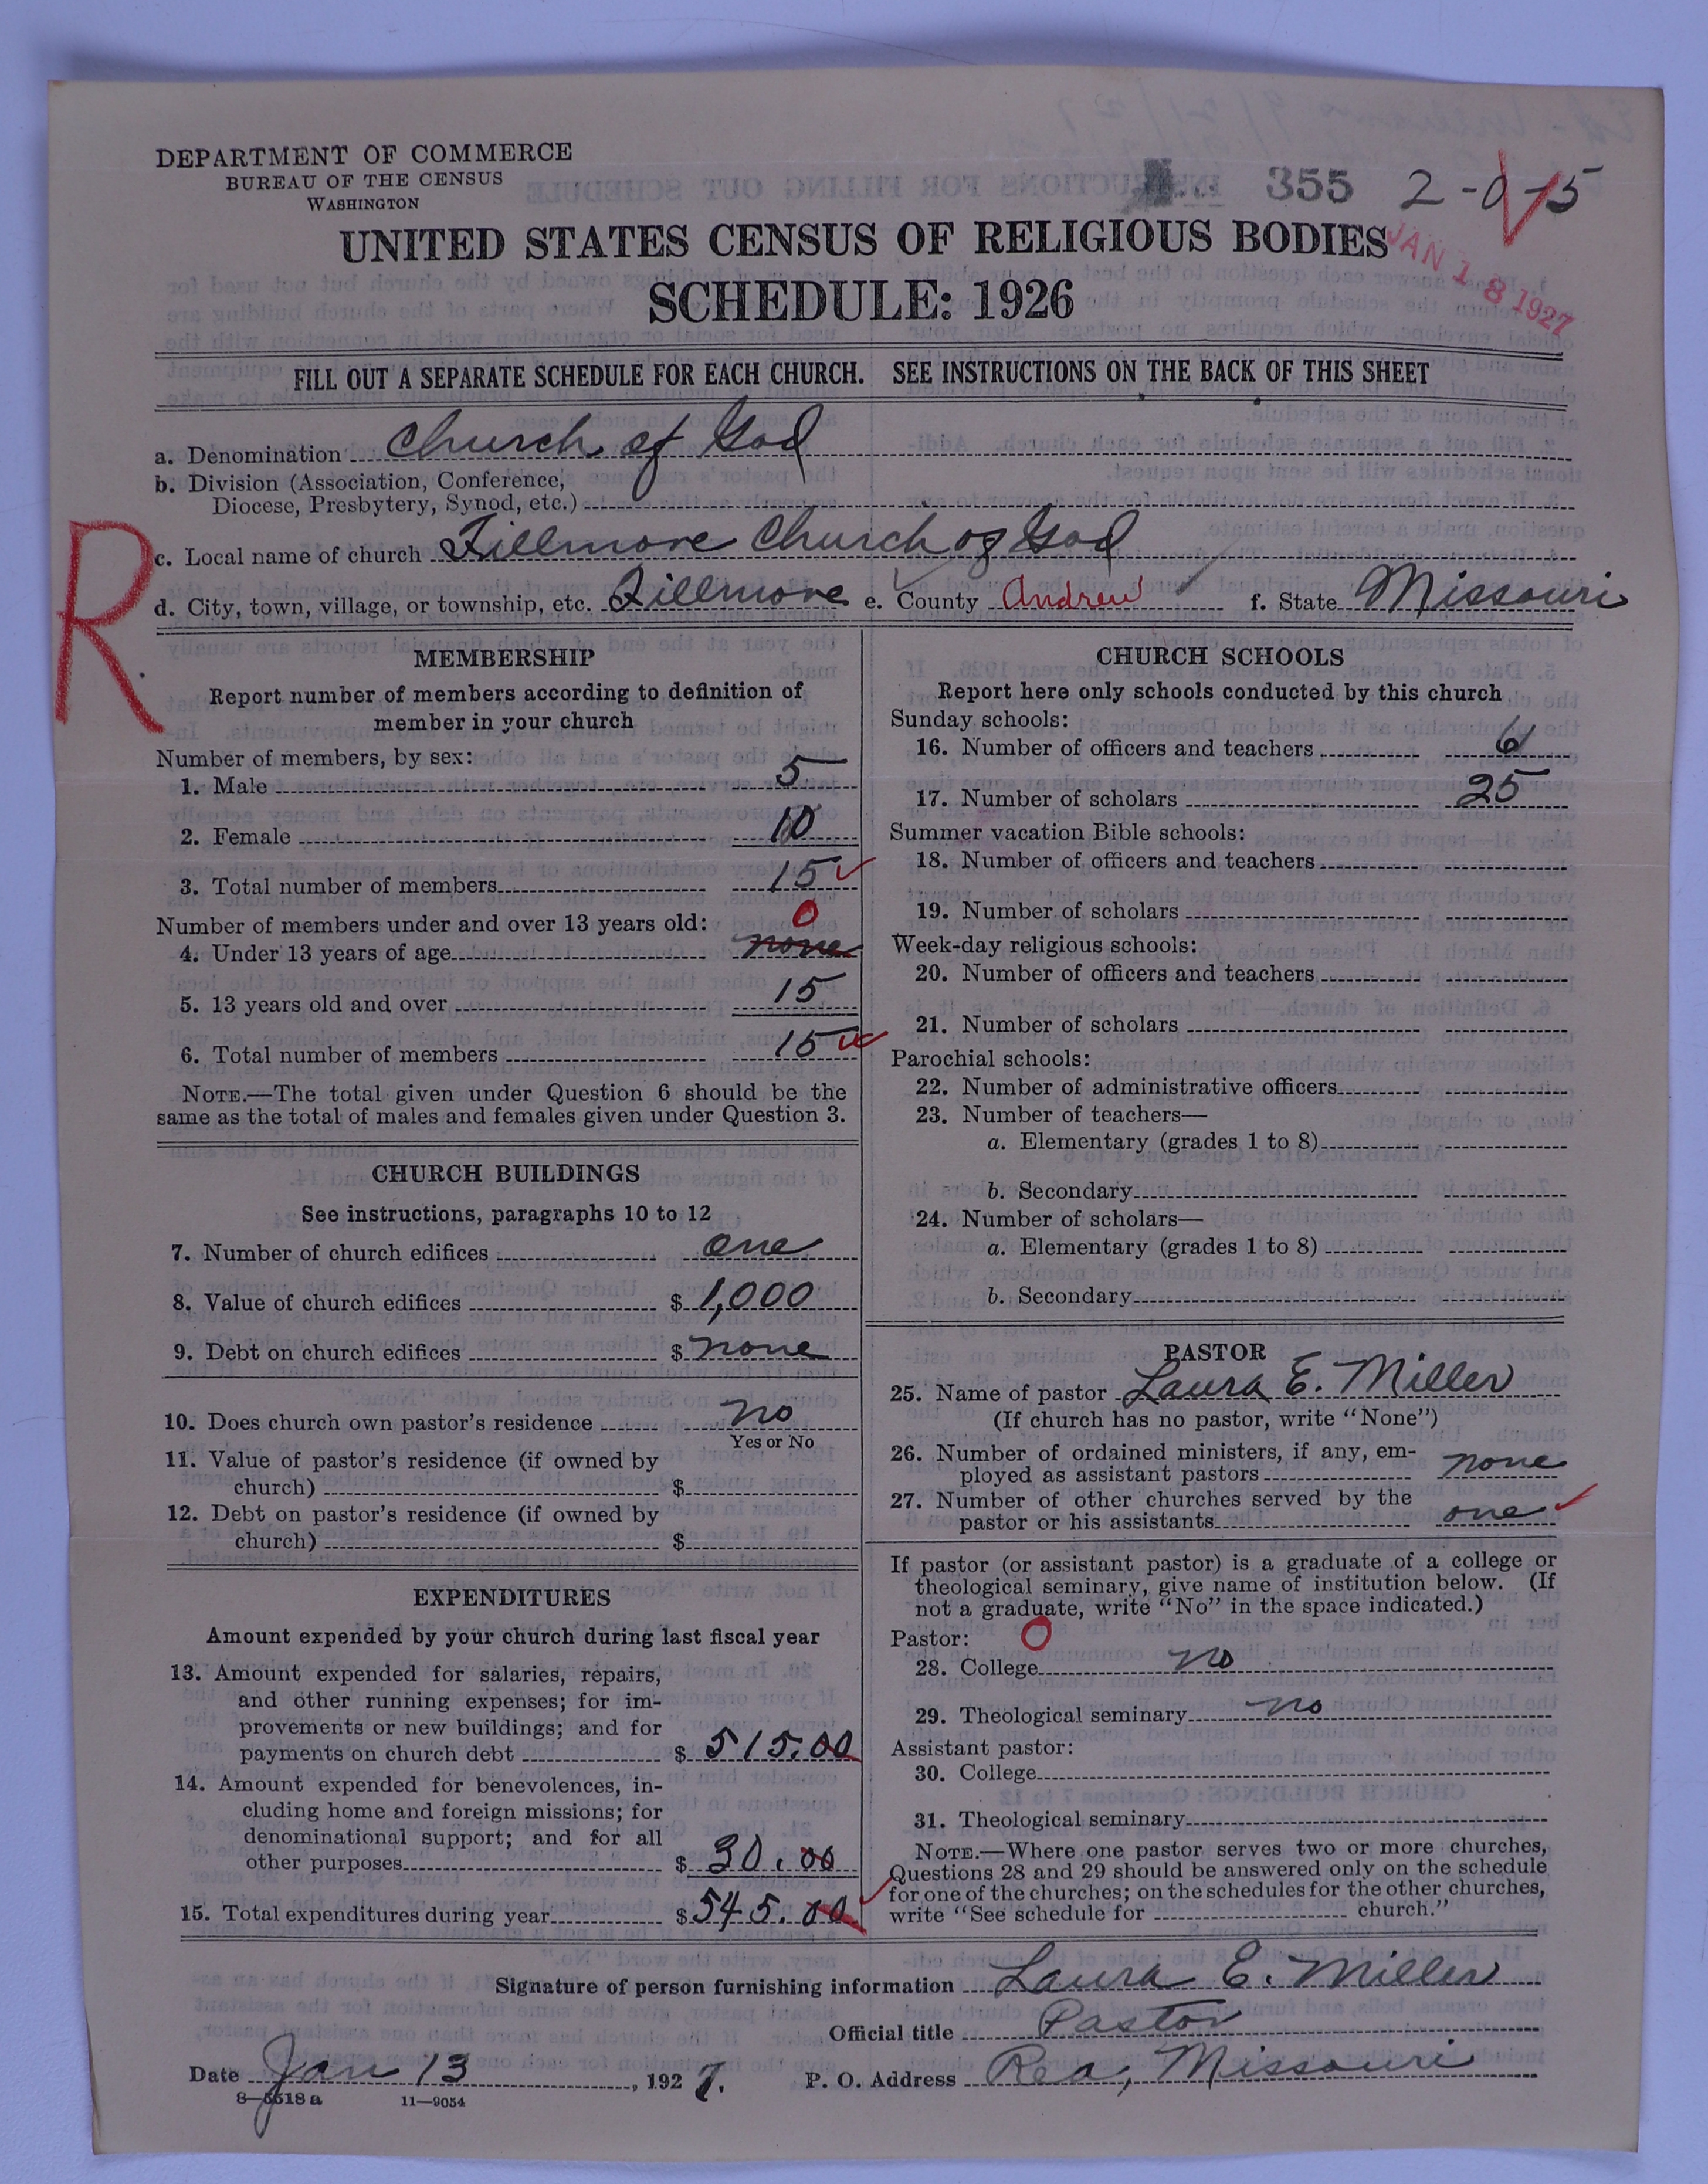 DEPARTMENT OF COMMERCE
BUREAU OF THE CENSUS
WASHINGTON
355 2-0-5
JAN 18 1927
UNITED STATES CENSUS OF RELIGIOUS BODIES
SCHEDULE: 1926
FILL OUT A SEPARATE SCHEDULE FOR EACH CHURCH. SEE INSTRUCTIONS ON THE BACK OF THIS SHEET
R
a. Denomination Church of God
b. Division (Association, Conference,
Diocese, Presbytery, Synod, etc.)
c. Local name of church Fillmore Church of God
d. City, town, village, or township, etc. Fillmore e. County Andrew f. State Missouri
MEMBERSHIP
Report number of members according to definition of
member in your church
Number of members, by sex:
1. Male 5
2. Female 10
3. Total number of members 15
Number of members under and over 13 years old: 0
4. Under 13 years of age none
5. 13 years old and over 15
6. Total number of members 15
NOTE.—The total given under Question 6 should be the
same as the total of males and females given under Question 3.
CHURCH BUILDINGS
See instructions, paragraphs 10 to 12
7. Number of church edifices one
8. Value of church edifices $ 1,000
9. Debt on church edifices $ none
10. Does church own pastor's residence no
Yes or No
11. Value of pastor's residence (if owned by
church) $
12. Debt on pastor's residence (if owned by
church) $
EXPENDITURES
Amount expended by your church during last fiscal year
13. Amount expended for salaries, repairs,
and other running expenses; for im-
provements or new buildings; and for
payments on church debt $ 515.00
14. Amount expended for benevolences, in-
cluding home and foreign missions; for
denominational support; and for all
other purposes $ 30.00
15. Total expenditures during year $ 545.00
CHURCH SCHOOLS
Report here only schools conducted by this church
Sunday schools:
16. Number of officers and teachers 6
17. Number of scholars 25
Summer vacation Bible schools:
18. Number of officers and teachers
19. Number of scholars
Week-day religious schools:
20. Number of officers and teachers
21. Number of scholars
Parochial schools:
22. Number of administrative officers
23. Number of teachers—
a. Elementary (grades 1 to 8)
b. Secondary
24. Number of scholars—
a. Elementary (grades 1 to 8)
b. Secondary
PASTOR
25. Name of pastor Laura E. Miller
(If church has no pastor, write "None")
26. Number of ordained ministers, if any, em-
ployed as assistant pastors none
27. Number of other churches served by the
pastor or his assistants one
If pastor (or assistant pastor) is a graduate of a college or
theological seminary, give name of institution below. (If
not a graduate, write "No" in the space indicated.)
Pastor: O
28. College no
29. Theological seminary no
Assistant pastor:
30. College
31. Theological seminary
NOTE.—Where one pastor serves two or more churches,
Questions 28 and 29 should be answered only on the schedule
for one of the churches; on the schedules for the other churches,
write "See schedule for church."
Signature of person furnishing information Laura E. Miller
Official title Pastor
Date Jan 13, 1927. P. O. Address Rea, Missouri
8—5518 a 11—9054